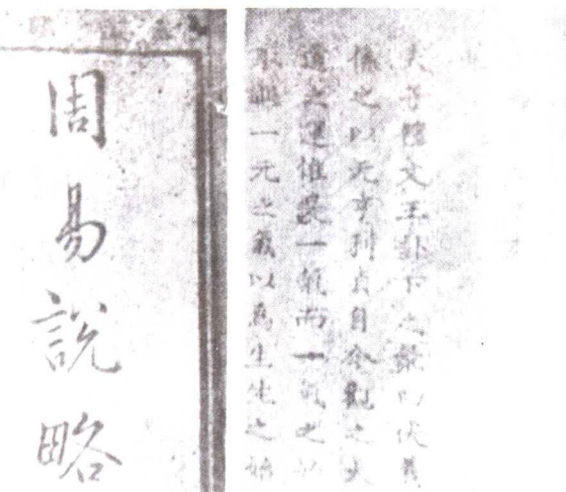 周易說略
夫子體文王卦下之辭曰伏羲
係之以元亨利貞自今觀之
道之運惟是一氣而一氣之
一元之氣以為生生之始